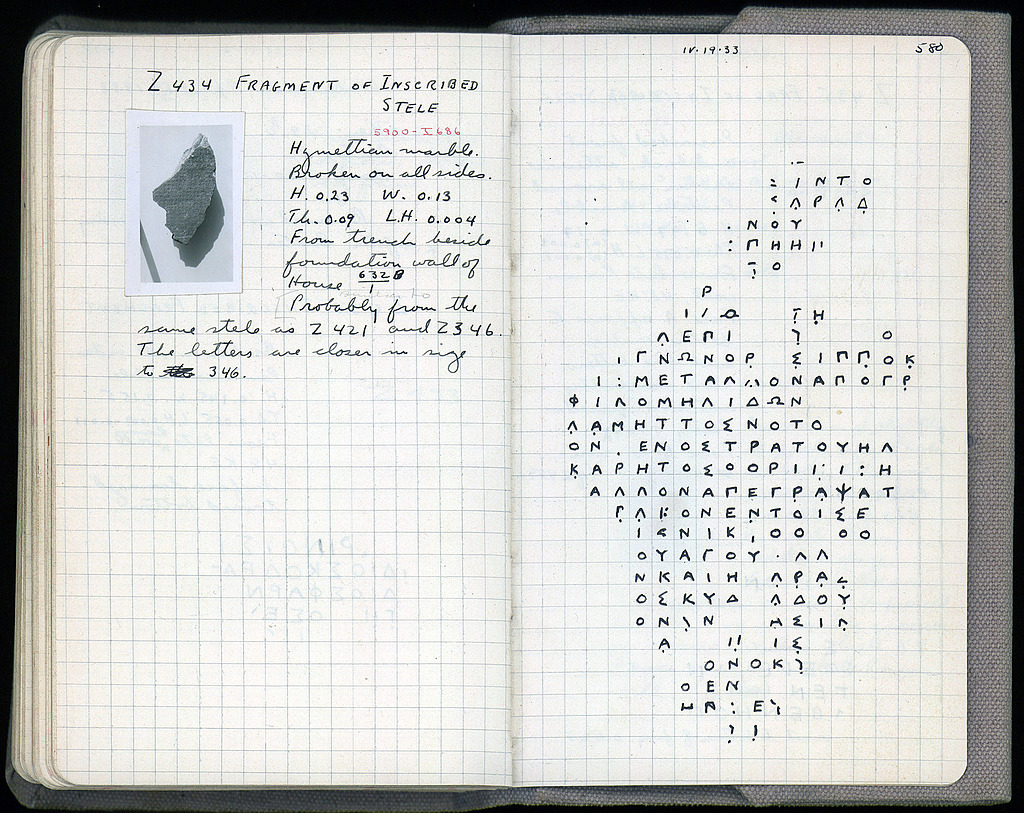 Z 434 FRAGMENT OF INSCRIBED
STELE
5900-I 686
Hymettian marble.
Broken on all sides.
H. 0.23 W. 0.13
Th. 0.09 L.H. 0.004
From trench beside
foundation wall of
House 632B/1
Probably from the
same stele as Z 421 and Z 346.
The letters are closer in size
to 346.
IV·19·33
580
ΙΝΤΟ
ΛΡΛΔ
ΝΟΥ
ΓΗΗ
Ο
Ρ
Η
ΛΕΠΙ Ο
ΓΝΩΝΟΡ ΣΙΠΠΟΚ
Ι:ΜΕΤΑΛΛΟΝΑΠΟΓΡ
ΦΙΛΟΜΗΛΙΔΩΝ
ΛΑΜΗΤΤΟΣΝΟΤΟ
ΟΝ. ΕΝΟΣΤΡΑΤΟΥΗΛ
ΚΑΡΗΤΟΣΟΟΡΙ
ΑΛΛΟΝΑΠΕΓΡΑΨΑΤ
ΟΝΕΝΤΟΙΣΕ
ΝΙΚ ΟΟ ΟΟ
ΟΥΑΓΟΥ·ΛΛ
ΝΚΑΙΗ ΛΡΑ
ΟΣΚΥΔ ΛΔΟΥ
ΟΝ Ν ΗΣΙΛ
Α ΙΣ
ΟΝΟΚ
ΟΕΝ